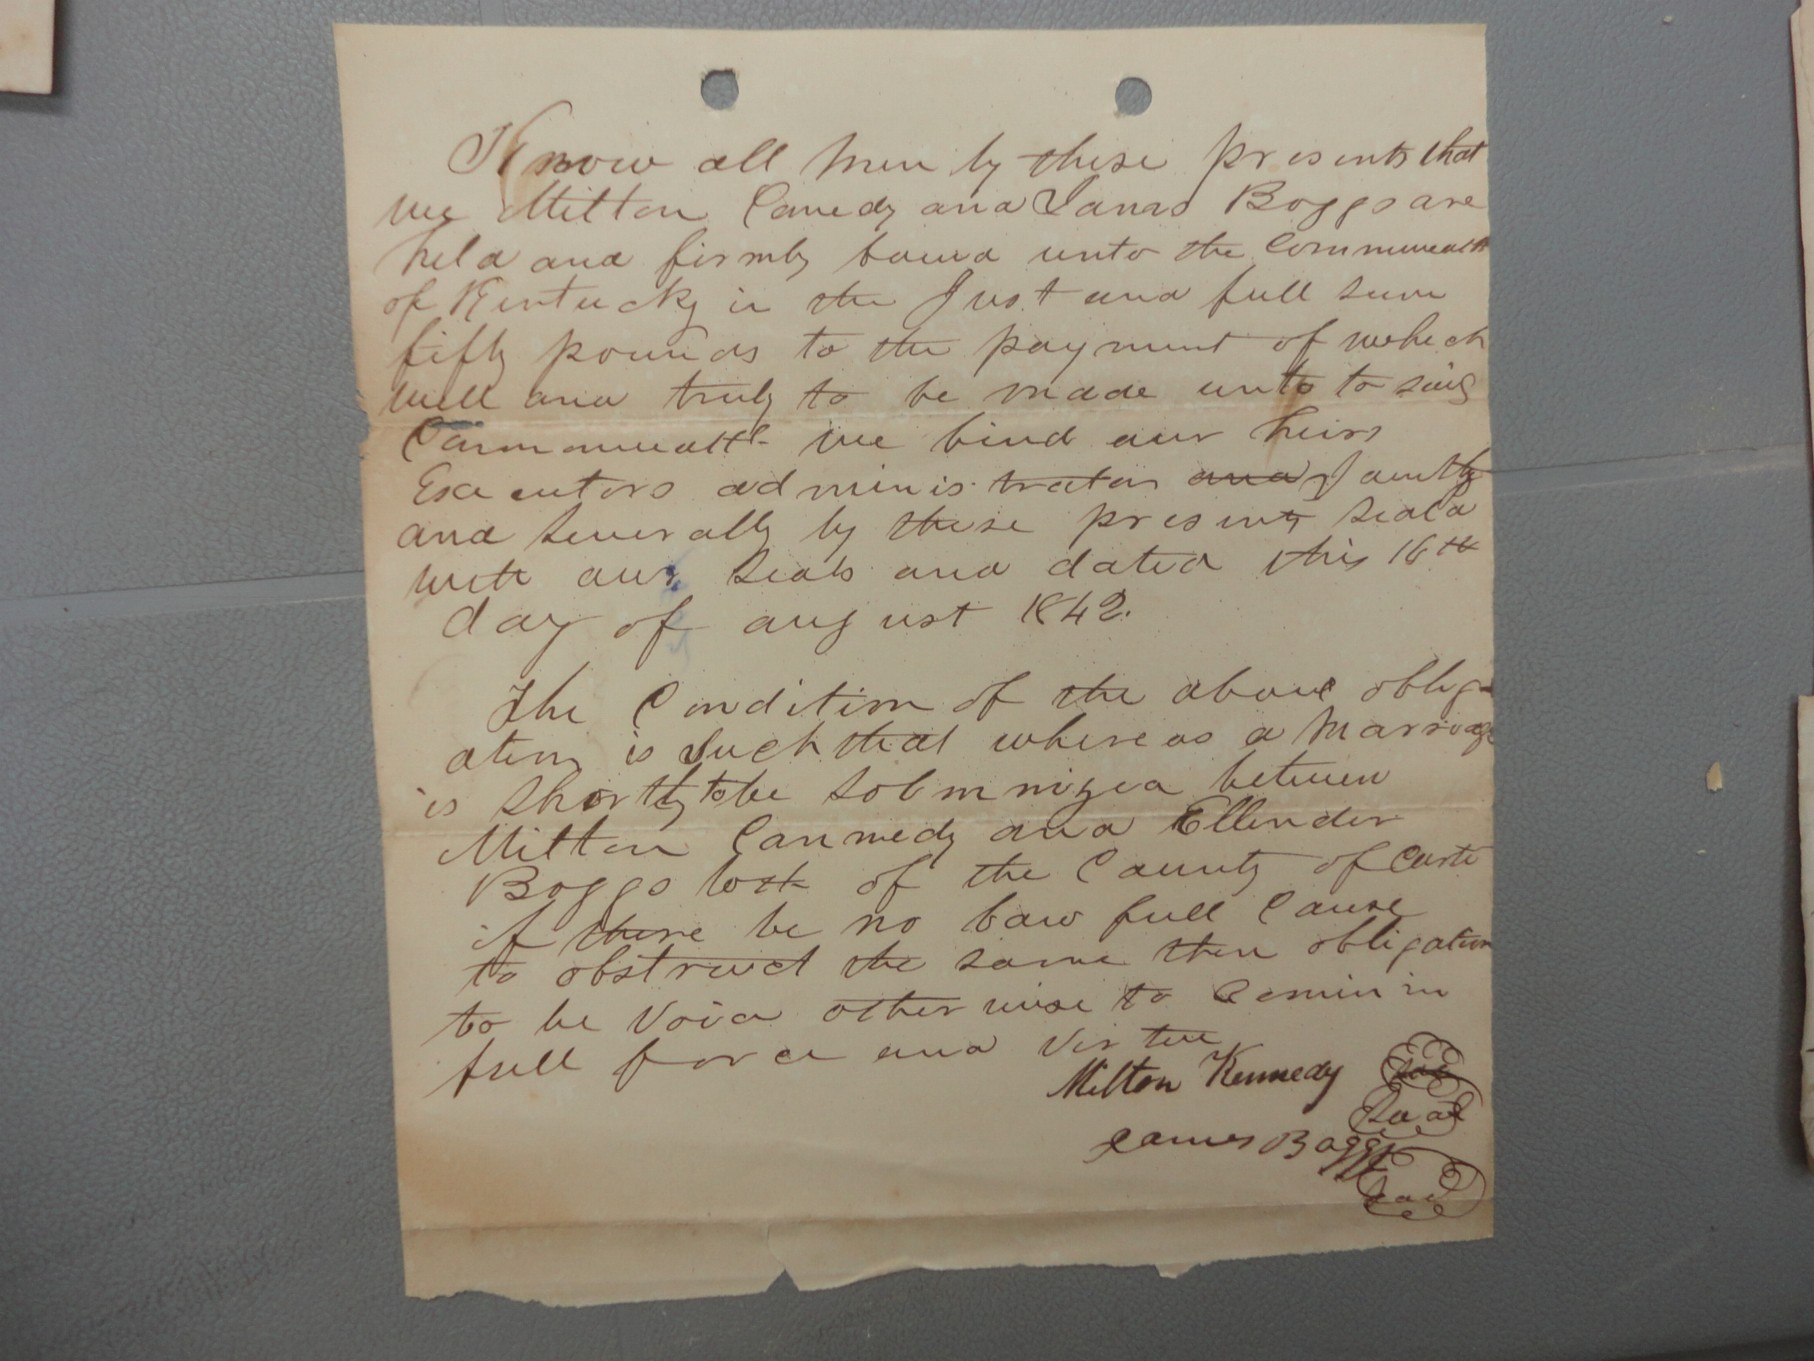 Know all men by these presents that
we Milton Canedy and James Boggs are
held and firmly bound unto the Commonwealth
of Kentucky in the Just and full sum
fifty pounds to the payment of which
well and truly to be made unto to said
Commonwealth we bind our heirs
Executors administrators and Jointly
and severally by these presents seald
with our seals and dated this 16th
day of august 1842.
The Condition of the above oblig
ation is such that where as a marriage
is shortly to be solemnized between
Milton Cannedy and Ellender
Boggs both of the County of Carter
if there be no lawfull Cause
to obstruct the same then obligation
to be void other wise to Remin in
full force and virtue
Milton Kennedy Seal
Seal
James Boggs
Seal